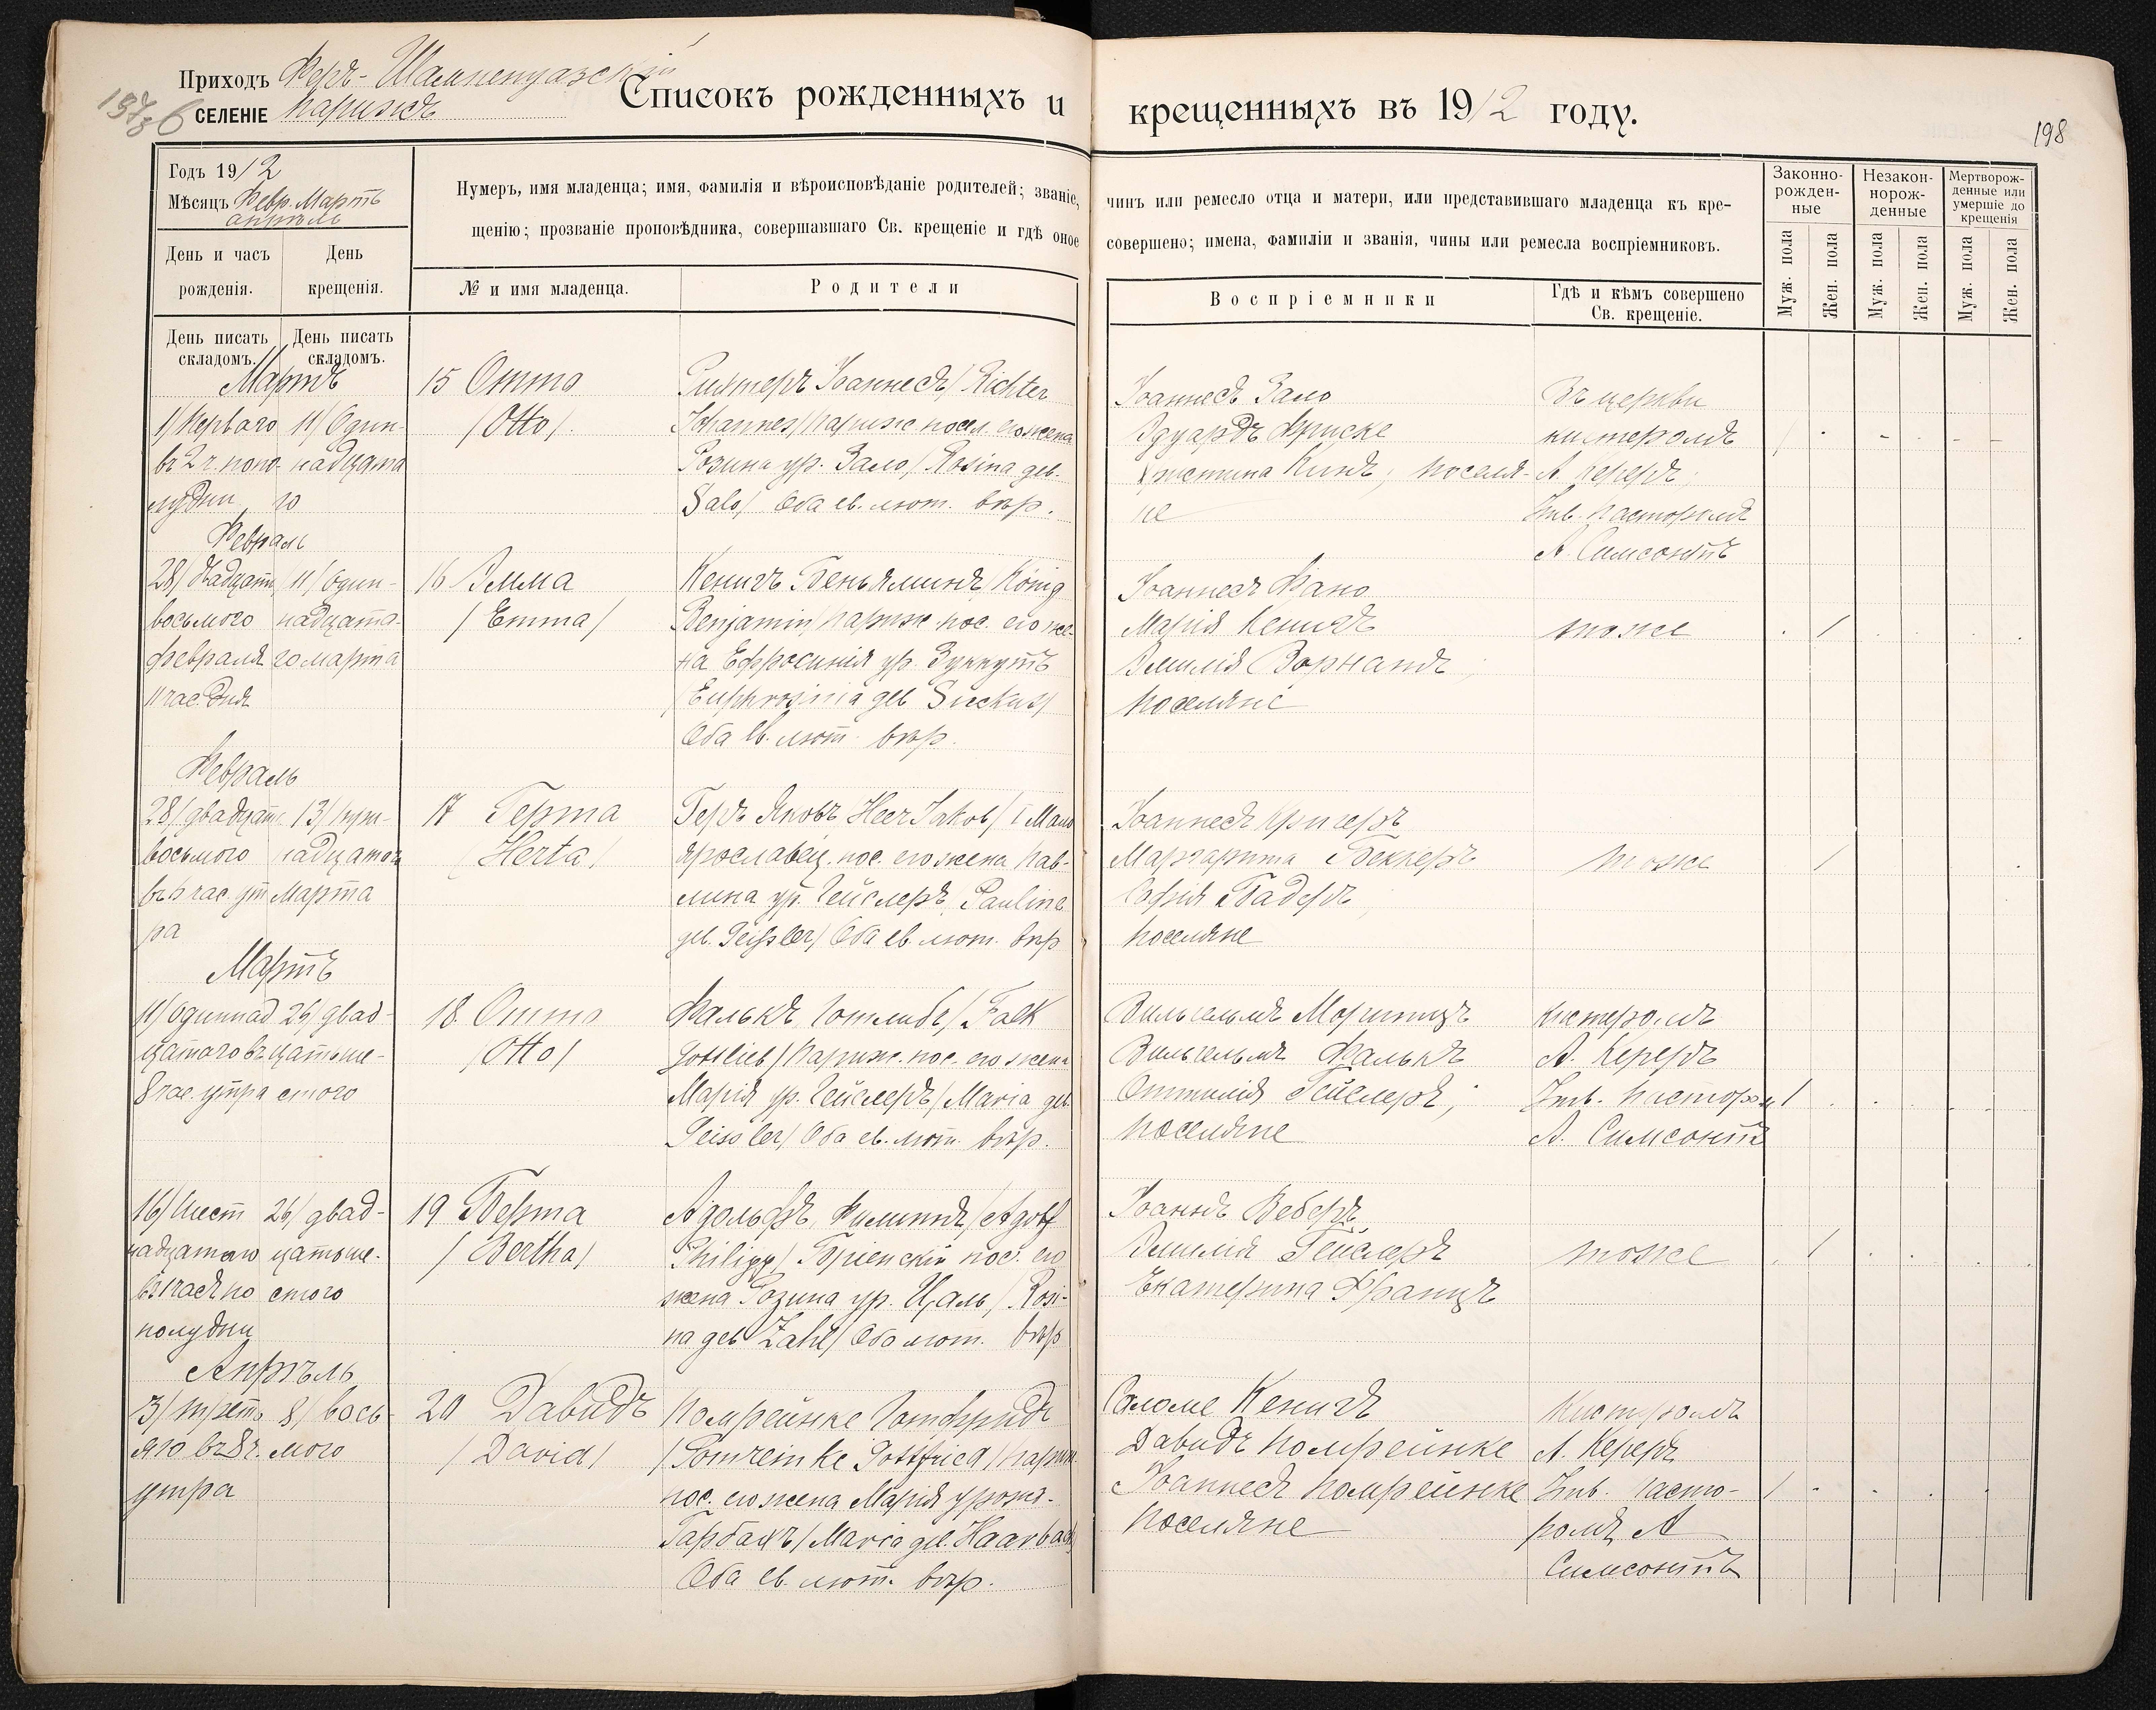 Приходъ Феръ-Шампенуазскій
СЕЛЕНІЕ Парижъ
Списокъ рожденныхъ и крещенныхъ въ 1912 году.
198
Годъ 1912
Мѣсяцъ Февр. Мартъ
апрѣль
День и часъ рожденія.
День крещенія.
Нумеръ, имя младенца; имя, фамилія и вѣроисповѣданіе родителей; званіе, чинъ или ремесло отца и матери, или представившаго младенца къ кре-
щенію; прозваніе проповѣдника, совершавшаго Св. крещеніе и гдѣ оное совершено; имена, фамиліи и званія, чины или ремесла воспріемниковъ.
№ и имя младенца.
Родители
Воспріемники
Гдѣ и кѣмъ совершено
Св. крещеніе.
Законно-
рожден-
ные
Незакон-
норож-
денные
Мертворож-
денные или
умершіе до
крещенія
Муж. пола
Жен. пола
Муж. пола
Жен. пола
Муж. пола
Жен. пола
День писать
складомъ.
День писать
складомъ.
Мартъ
1/ Перваго
въ 2 ч. попо-
лудни
11/ Один-
надцата
го
15 Отто
/Otto/.
Рихтеръ Іоаннесъ/ Richter
Johannes/ Париж. посел. его жена
Розина ур. Зало,/ Rosina geb.
Salo/ Оба ев. лют. вѣр.
Іоаннесъ Зало
Эдуардъ Фриске
Христина Кинъ, поселя-
не
Въ церкви
кистеромъ
А. Кереръ,
Утв. Пасторомъ
А. Симсонъ
1
Февраль
28/ двадцать
восьмого
февраля
11 час. дня
11/ Один-
надцата-
го марта
16 Эмма
/ Emma/
Кенигъ Беньяминъ/ König
Benjamin/ Париж. пос. его же-
на Ефросинія ур. Зуккутъ
/Euphrosinia geb Suckut/
Оба ев. лют. вѣр.
Марія Кенигъ
Эмилія
поселяне
тоже
1
Февраль
28/ двадцать
восьмого
ра
13/ три-
надцатого
Марта
17 Герта
/Herta/
Геръ Яковъ Heer Jakob/ I Мало
ярославец. пос. его жена Пав-
лина ур. Гейслеръ, Pauline
geb. Geissler/ Оба ев. лют. вѣр
Іоаннесъ Кригеръ
Маргарита Беккеръ
Софія Бадеръ,
поселяне
тоже
1
Мартъ
11/ Одиннад
цатого въ
8 час. утра
26/ двад-
цать ше-
стого
18. Отто
/Otto/
Фалькъ Готлибъ/ Falk
Gottlieb/ Париж. пос. его жена
Марія ур. Гейслеръ/ Maria geb.
Geissler/ Оба ев. лют. вѣр.
Вильгельмъ Моритцъ
Вильгельмъ Фалькъ
Оттилія Гейслеръ;
поселяне
Кистеромъ
А. Кереръ
Утв. Пастором
А. Симсонъ
1
16/ Шест
надцатаго
въ 1 час. по
полудни
26/ двад-
цать ше-
стого
19 Берта
/ Bertha/
Адольфъ, Филиппъ/ Adolf
Philipp/ Бріенскій пос. его
жена Розина ур. Цаль/ Rosi-
na geb Zahl/ Оба лют. вѣр
Іоаннъ Веберъ,
Эмилія Гейслеръ
Екатерина Францъ
тоже
1
Апрѣль
3/ треть
яго въ 8 ч.
утра
8/ вось-
мого
20 Давидъ
/ David/
Помрейнке Готфридъ
/Pomreinke Gottfried/ париж.
пос. его жена Марія урожд.
Гарбахъ/ Maria geb. Haarbach
Оба ев. лют. вѣр.
Саломе Кенигъ
Давидъ Помрейнке
Іоаннесъ Помрейнке
Поселяне
Кистеромъ
А. Кереръ
Утв. Пасто-
ромъ А
Симсонъ
1